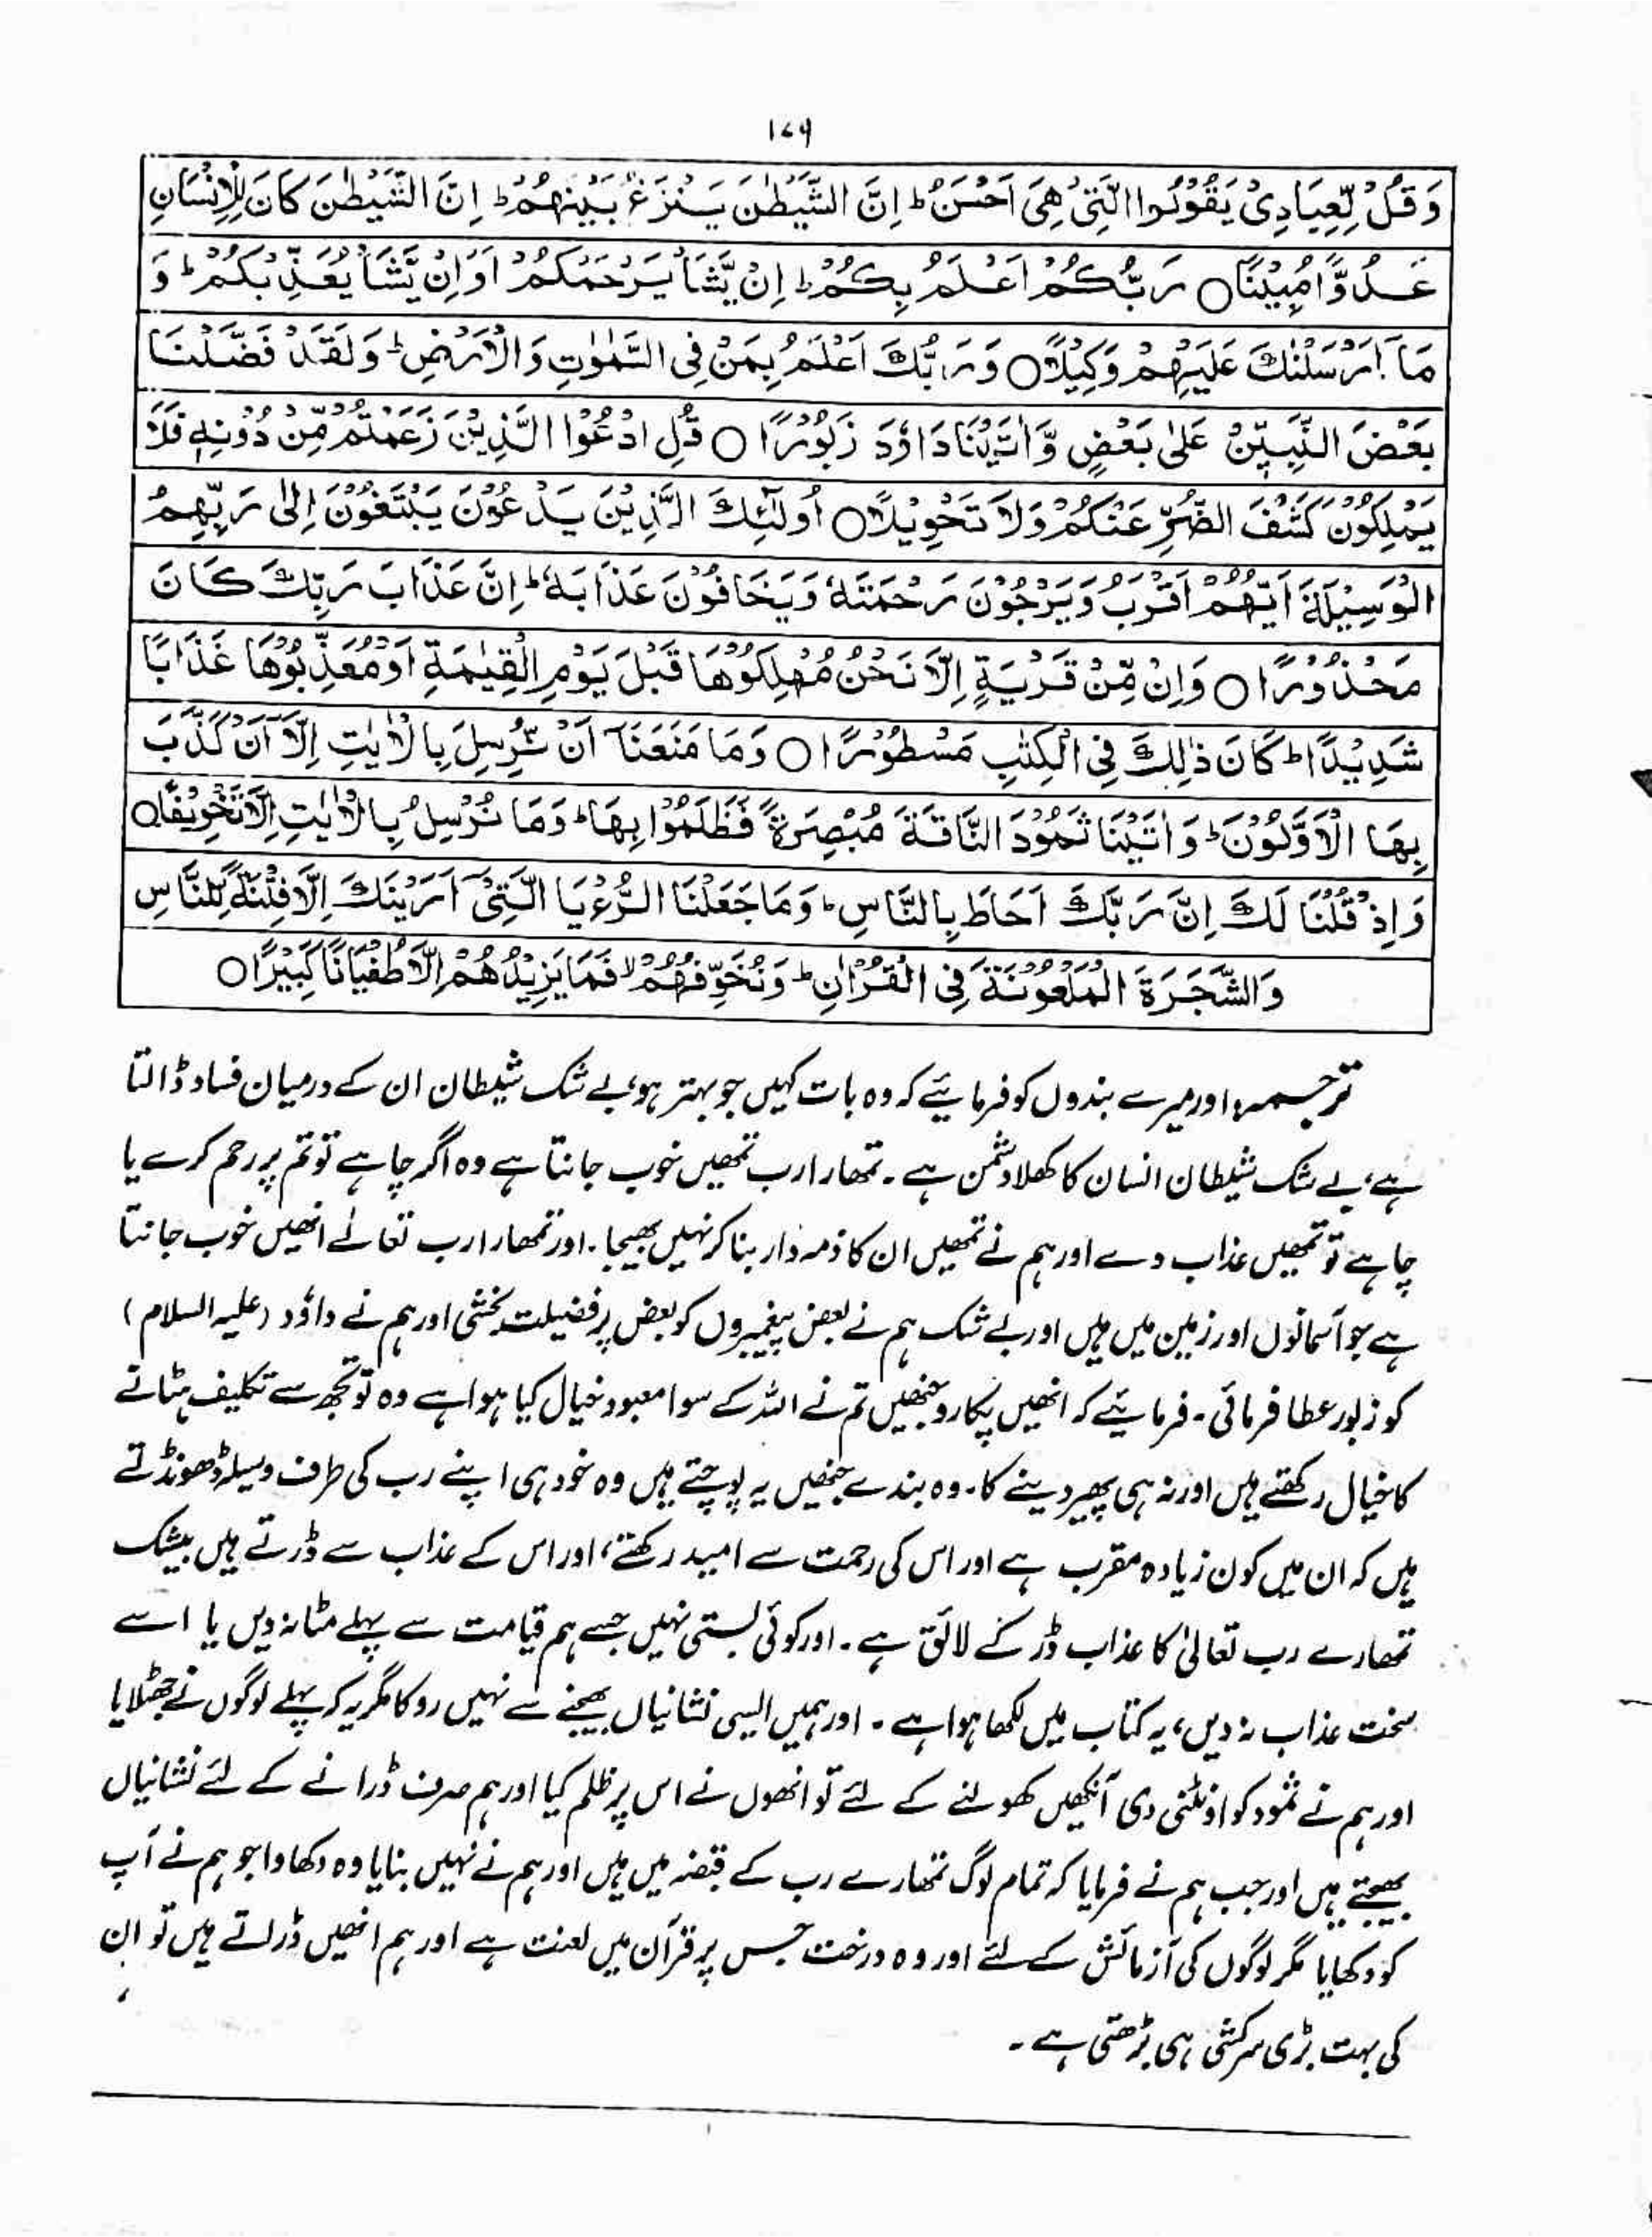 ۱۷۹
وَقُلْ لِّعِبَادِیْ یَقُوْلُوا الَّتِیْ هِیَ اَحْسَنُ ؕ اِنَّ الشَّیْطٰنَ یَنْزَغُ بَیْنَهُمْ ؕ اِنَّ الشَّیْطٰنَ کَانَ لِلْاِنْسَانِ
عَدُوًّا مُّبِیْنًا ○ رَبُّکُمْ اَعْلَمُ بِکُمْ ؕ اِنْ یَّشَاْ یَرْحَمْکُمْ اَوْ اِنْ یَّشَاْ یُعَذِّبْکُمْ ؕ وَ
مَاۤ اَرْسَلْنٰكَ عَلَیْهِمْ وَکِیْلًا ○ وَرَبُّكَ اَعْلَمُ بِمَنْ فِی السَّمٰوٰتِ وَالْاَرْضِ ؕ وَلَقَدْ فَضَّلْنَا
بَعْضَ النَّبِیّٖنَ عَلٰی بَعْضٍ وَّاٰتَیْنَا دَاوٗدَ زَبُوْرًا ○ قُلِ ادْعُوا الَّذِیْنَ زَعَمْتُمْ مِّنْ دُوْنِهٖ فَلَا
یَمْلِکُوْنَ کَشْفَ الضُّرِّ عَنْکُمْ وَلَا تَحْوِیْلًا ○ اُولٰٓئِكَ الَّذِیْنَ یَدْعُوْنَ یَبْتَغُوْنَ اِلٰی رَبِّهِمُ
الْوَسِیْلَةَ اَیُّهُمْ اَقْرَبُ وَیَرْجُوْنَ رَحْمَتَهٗ وَیَخَافُوْنَ عَذَابَهٗ ؕ اِنَّ عَذَابَ رَبِّكَ کَانَ
مَحْذُوْرًا ○ وَاِنْ مِّنْ قَرْیَةٍ اِلَّا نَحْنُ مُهْلِکُوْهَا قَبْلَ یَوْمِ الْقِیٰمَةِ اَوْ مُعَذِّبُوْهَا عَذَابًا
شَدِیْدًا ؕ کَانَ ذٰلِكَ فِی الْکِتٰبِ مَسْطُوْرًا ○ وَمَا مَنَعَنَاۤ اَنْ نُّرْسِلَ بِالْاٰیٰتِ اِلَّاۤ اَنْ کَذَّبَ
بِهَا الْاَوَّلُوْنَ ؕ وَاٰتَیْنَا ثَمُوْدَ النَّاقَةَ مُبْصِرَةً فَظَلَمُوْا بِهَا ؕ وَمَا نُرْسِلُ بِالْاٰیٰتِ اِلَّا تَخْوِیْفًا ○
وَاِذْ قُلْنَا لَكَ اِنَّ رَبَّكَ اَحَاطَ بِالنَّاسِ ؕ وَمَا جَعَلْنَا الرُّءْیَا الَّتِیْۤ اَرَیْنٰكَ اِلَّا فِتْنَةً لِّلنَّاسِ
وَالشَّجَرَةَ الْمَلْعُوْنَةَ فِی الْقُرْاٰنِ ؕ وَنُخَوِّفُهُمْ ۙ فَمَا یَزِیْدُهُمْ اِلَّا طُغْیَانًا کَبِیْرًا ○
ترجمہ: اور میرے بندوں کو فرمائیے کہ وہ بات کہیں جو بہتر ہو، بے شک شیطان ان کے درمیان فساد ڈالتا
ہے، بے شک شیطان انسان کا کھلا دشمن ہے۔ تمھارا رب تمھیں خوب جانتا ہے وہ اگر چاہے تو تم پر رحم کرے یا
چاہے تو تمھیں عذاب دے اور ہم نے تمھیں ان کا ذمہ دار بنا کر نہیں بھیجا۔ اور تمھارا رب تعالےٰ انھیں خوب جانتا
ہے جو آسمانوں اور زمین میں ہیں اور بے شک ہم نے بعض پیغمبروں کو بعض پر فضیلت بخشی اور ہم نے داؤد (علیہ السلام)
کو زبور عطا فرمائی۔ فرمائیے کہ انھیں پکارو جنھیں تم نے اللہ کے سوا معبود خیال کیا ہوا ہے وہ تو تجھ سے تکلیف ہٹانے
کا خیال رکھتے ہیں اور نہ ہی پھیر دینے کا۔ وہ بندے جنھیں یہ پوجتے ہیں وہ خود ہی اپنے رب کی طرف وسیلہ ڈھونڈتے
ہیں کہ ان میں کون زیادہ مقرب ہے اور اس کی رحمت سے امید رکھتے، اور اس کے عذاب سے ڈرتے ہیں بیشک
تمھارے رب تعالیٰ کا عذاب ڈر کے لائق ہے۔ اور کوئی بستی نہیں جسے ہم قیامت سے پہلے مٹا نہ دیں یا اسے
سخت عذاب نہ دیں، یہ کتاب میں لکھا ہوا ہے۔ اور ہمیں ایسی نشانیاں بھیجنے سے نہیں روکا مگر یہ کہ پہلے لوگوں نے جھٹلایا
اور ہم نے ثمود کو اونٹنی دی آنکھیں کھولنے کے لئے تو انھوں نے اس پر ظلم کیا اور ہم صرف ڈرانے کے لئے نشانیاں
بھیجتے ہیں اور جب ہم نے فرمایا کہ تمام لوگ تمھارے رب کے قبضہ میں ہیں اور ہم نے نہیں بنایا وہ دکھاوا جو ہم نے آپ
کو دکھایا مگر لوگوں کی آزمائش کے لئے اور وہ درخت جس پر قرآن میں لعنت ہے اور ہم انھیں ڈراتے ہیں تو ان
کی بہت بڑی سرکشی ہی بڑھتی ہے۔